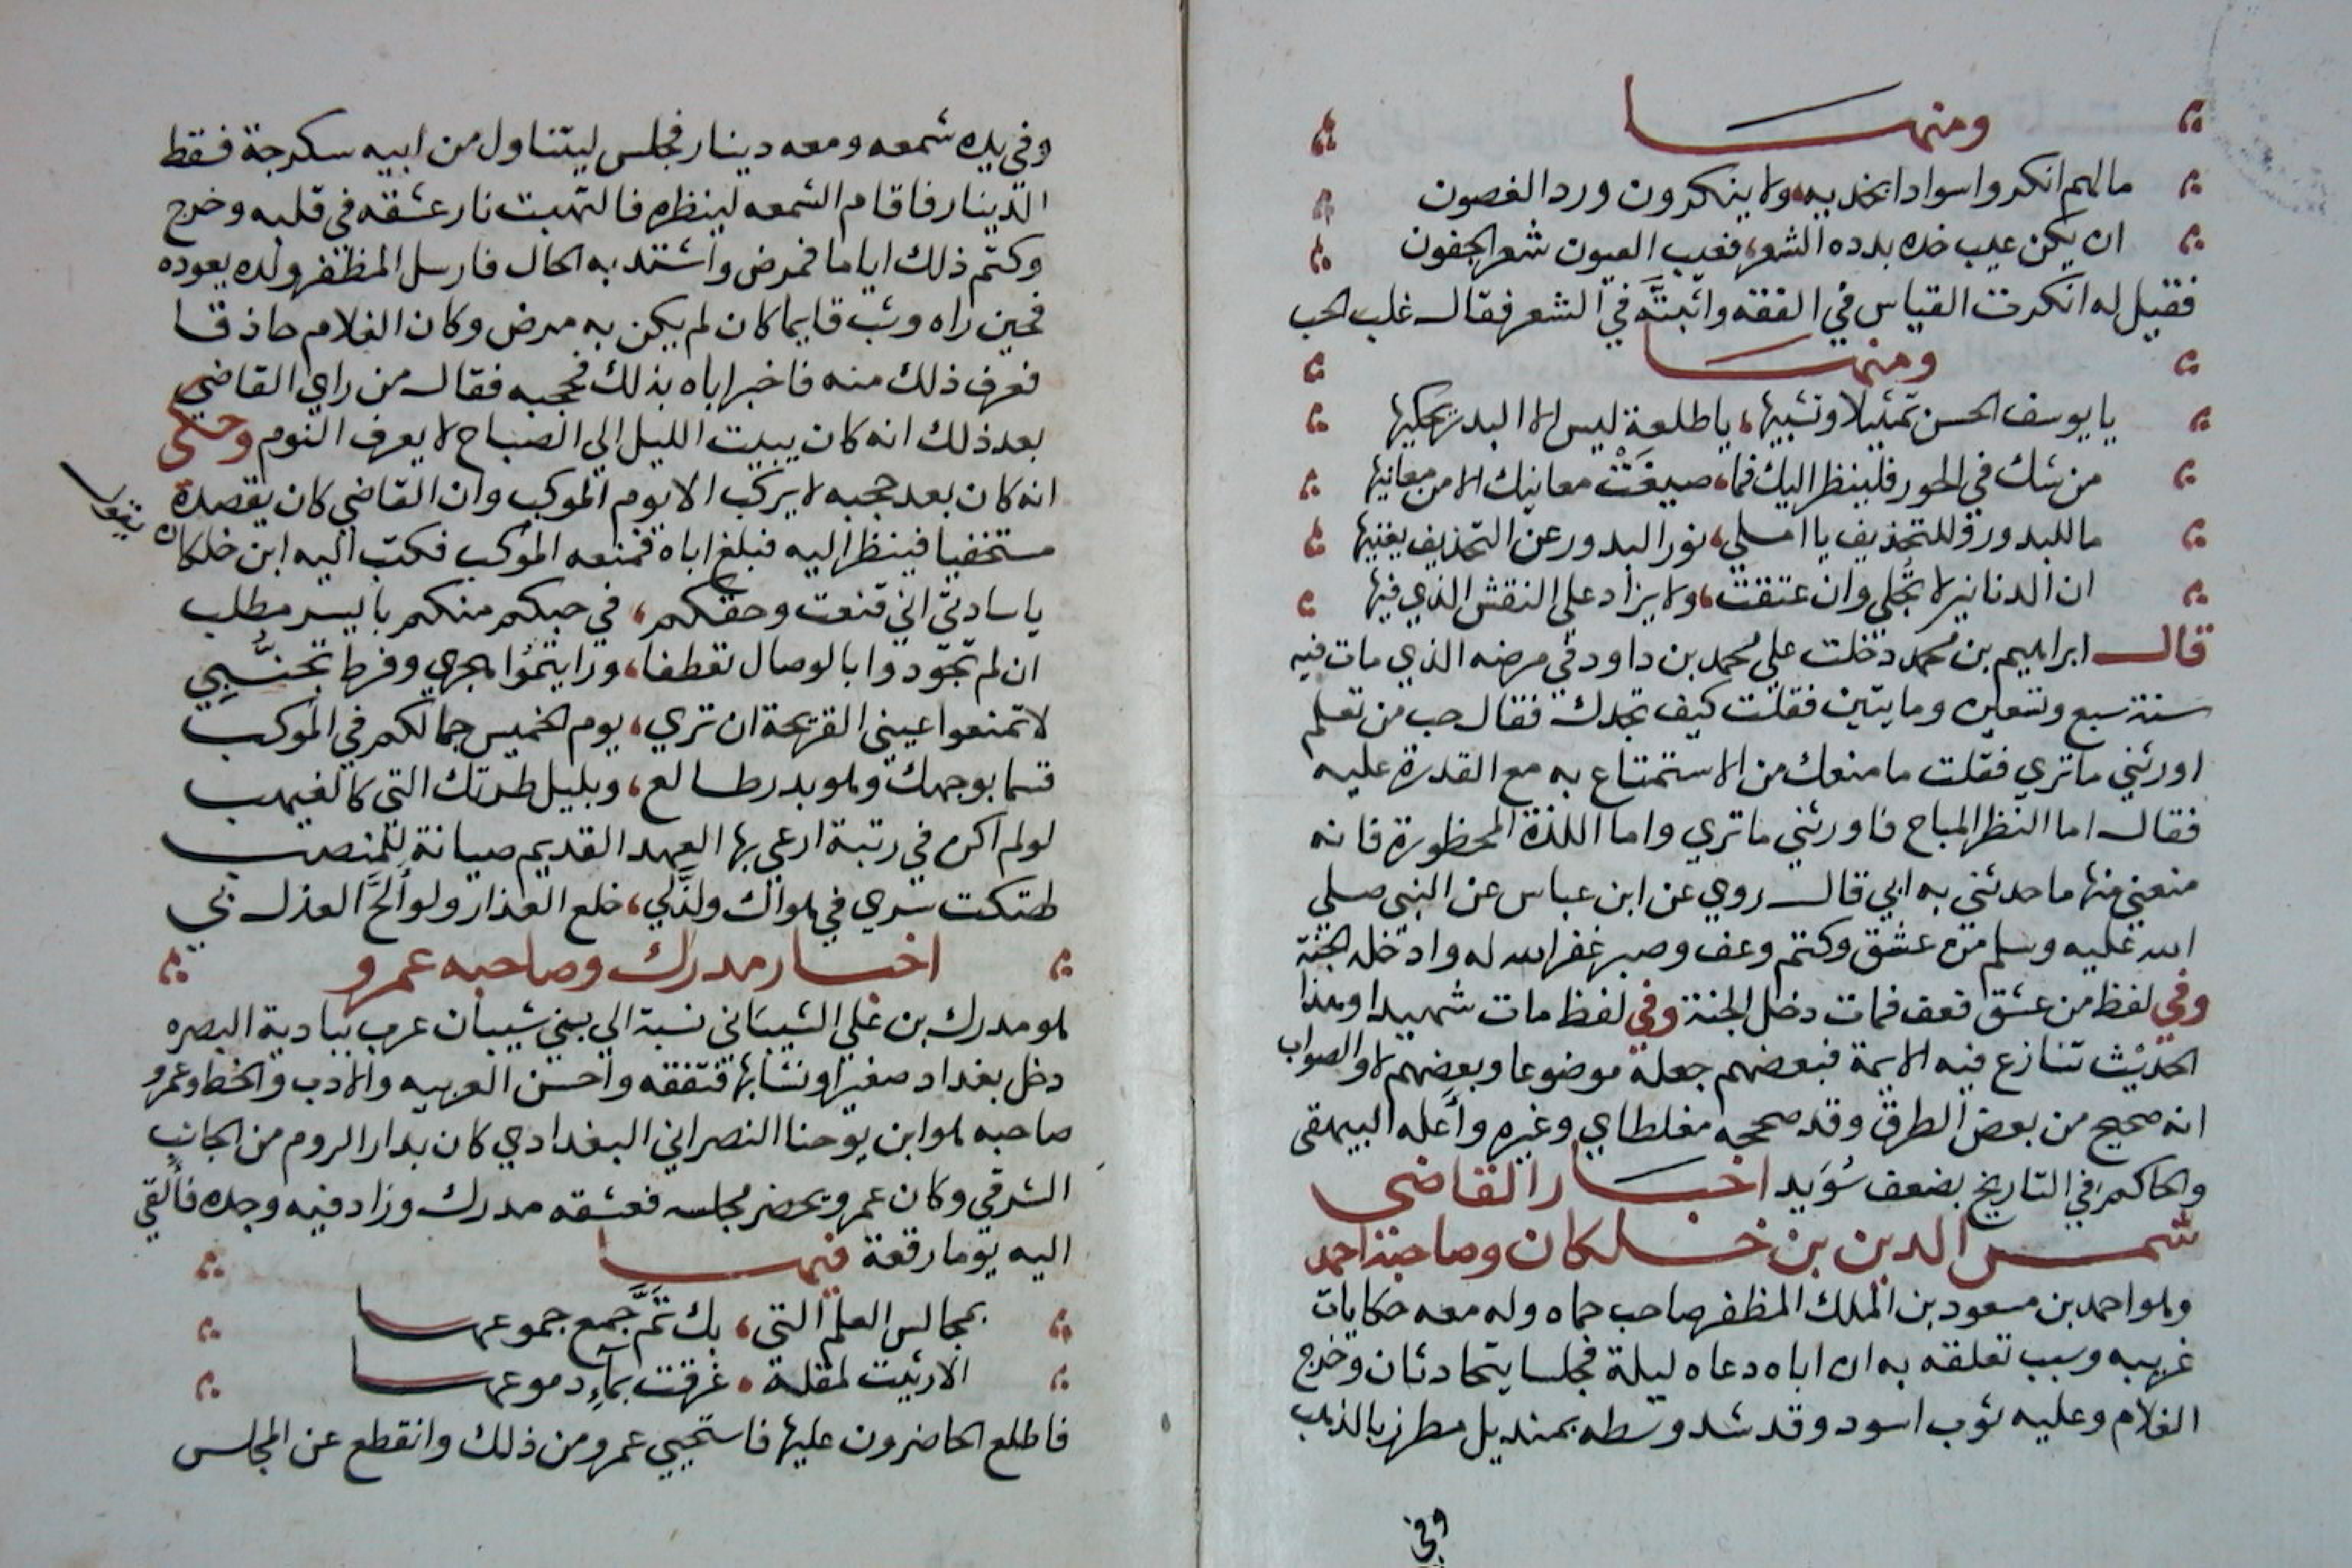 ومنها
مالهم انكروا سوادا بخديه ولا ينكرون ورد الغصون
ان يكن عيب خده بدده الشعر فعيب العيون شعر الجفون
فقيل له انكرت القياس في الفقه واثبته في الشعر فقال غلب الحب
ومنها
يا يوسف الحسن تمثيلا وتشبيها يا طلعة ليس الا البدر يحكيها
من شك في الحور فلينظر اليك فما صيغت معانيك الا من معانيها
ما للبدور وللتحذيف يا املي نور البدور عن التحذيف يغنيها
ان الدنانير لا تجلي وان عتقت ولا يزاد علي النقش الذي فيها
قال ابراهيم بن محمد دخلت علي محمد بن داود في مرضه الذي مات فيه
سنة سبع وتسعين ومايتين فقلت كيف تجدك فقال حب من تعلم
اورثني ما تري فقلت ما منعك من الاستمتاع به مع القدرة عليه
فقال اما النظر المباح فاورثني ما تري واما اللذة المحظورة فانه
منعني منها ما حدثني به ابي قال روي عن ابن عباس عن النبي صلي
الله عليه وسلم من عشق وكتم وعف وصبر غفر الله له وادخله الجنة
وفي لفظ من عشق فعف فمات دخل الجنة وفي لفظ مات شهيدا وهذا
الحديث تنازع فيه الايمة فبعضهم جعله موضوعا وبعضهم لا والصواب
انه صحيح من بعض الطرق وقد صححه مغلطاي وغيره وأعله البيهقي
والحاكم في التاريخ بضعف سويد اخبار القاضي
شمس الدين بن خلكان وصاحبه احمد
وهو احمد بن مسعود بن الملك المظفر صاحب حماه وله معه حكايات
غريبه وسبب تعلقه به ان اباه دعاه ليلة فجلسا يتحادثان وخرج
الغلام وعليه ثوب اسود وقد شد وسطه بمنديل مطرز بالذهب
وفي
وفي يده شمعه ومعه دينار فجلس ليتناول من ابيه سكرجة فقط
الدينار فاقام الشمعه لينظره فالتهبت نار عشقه في قلبه وخرج
وكتم ذلك اياما فمرض واشتد به الحال فارسل المظفر ولده يعوده
فحين راه وثب قايما كان لم يكن به مرض وكان الغلام حاذقا
فعرف ذلك منه فاخبر اباه بذلك فحجبه فقال من راي القاضي
بعد ذلك انه كان يبيت الليل الي الصباح لا يعرف النوم وحكي
انه كان بعد حجبه لا يركب الا يوم الموكب وان القاضي كان يقصده
مستخفيا فينظر اليه فبلغ اباه فمنعه الموكب فكتب اليه ابن خلكان يقول
يا سادتي اني قنعت وحقكم في حبكم منكم بايسر مطلب
ان لم تجودوا بالوصال تعطفا ورايتموا هجري وفرط تجنبي
لا تمنعوا عيني القريحة ان تري يوم الخميس جمالكم في الموكب
قسما بوجهك وهو بدر طالع وبليل طرتك التي كالغيهب
لو لم اكن في رتبة ارعي بها العهد القديم صيانة للمنصب
لهتكت ستري في هواك ولذلي خلع العذار ولو ألح العذل بي
اخبار مدرك وصاحبه عمرو
هو مدرك بن علي الشيباني نسبة الي بني شيبان عرب ببادية البصره
دخل بغداد صغيرا ونشا بها فتفقه واحسن العربيه والادب والخط وعمرو
صاحبه هو ابن يوحنا النصراني البغدادي كان بدار الروم من الجانب
الشرقي وكان عمرو يحضر مجلسه فعشقه مدرك وزاد فيه وجده فألقي
اليه يوما رقعة فيها
بمجالس العلم التي بك تم جمع جموعها
الا رثيت لمقلة غرقت بماء دموعها
فاطلع الحاضرون عليها فاستحيي عمرو من ذلك وانقطع عن المجلس